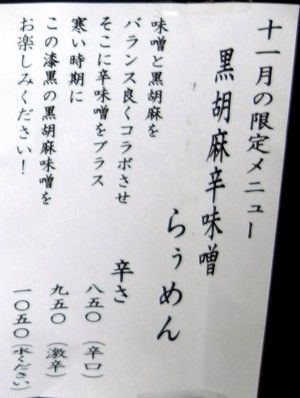 十一月の限定メニュー
黒胡麻辛味噌
らぅめん
味噌と黒胡麻を
バランス良くコラボさせ
そこに辛味噌をプラス
寒い時期に
この漆黒の黒胡麻味噌を
お楽しみください！
辛さ
八五〇（辛口）
九五〇（激辛）
一〇五〇（水ください）